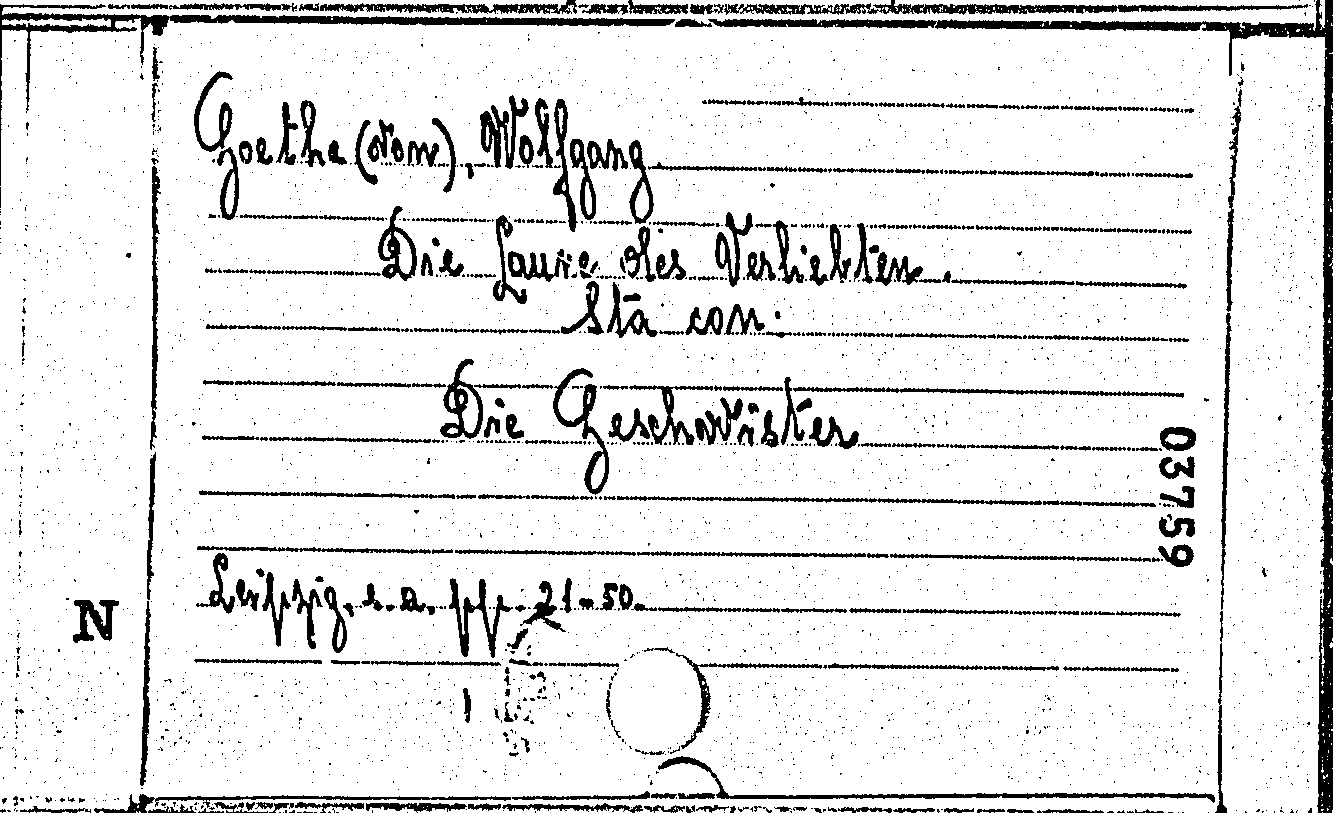 Goethe (von), Wolfgang.
Die Laune des Verliebten.
Sta con:
Die Geschwister
03759
Leipzig, s.a. pp. 21-50.
N